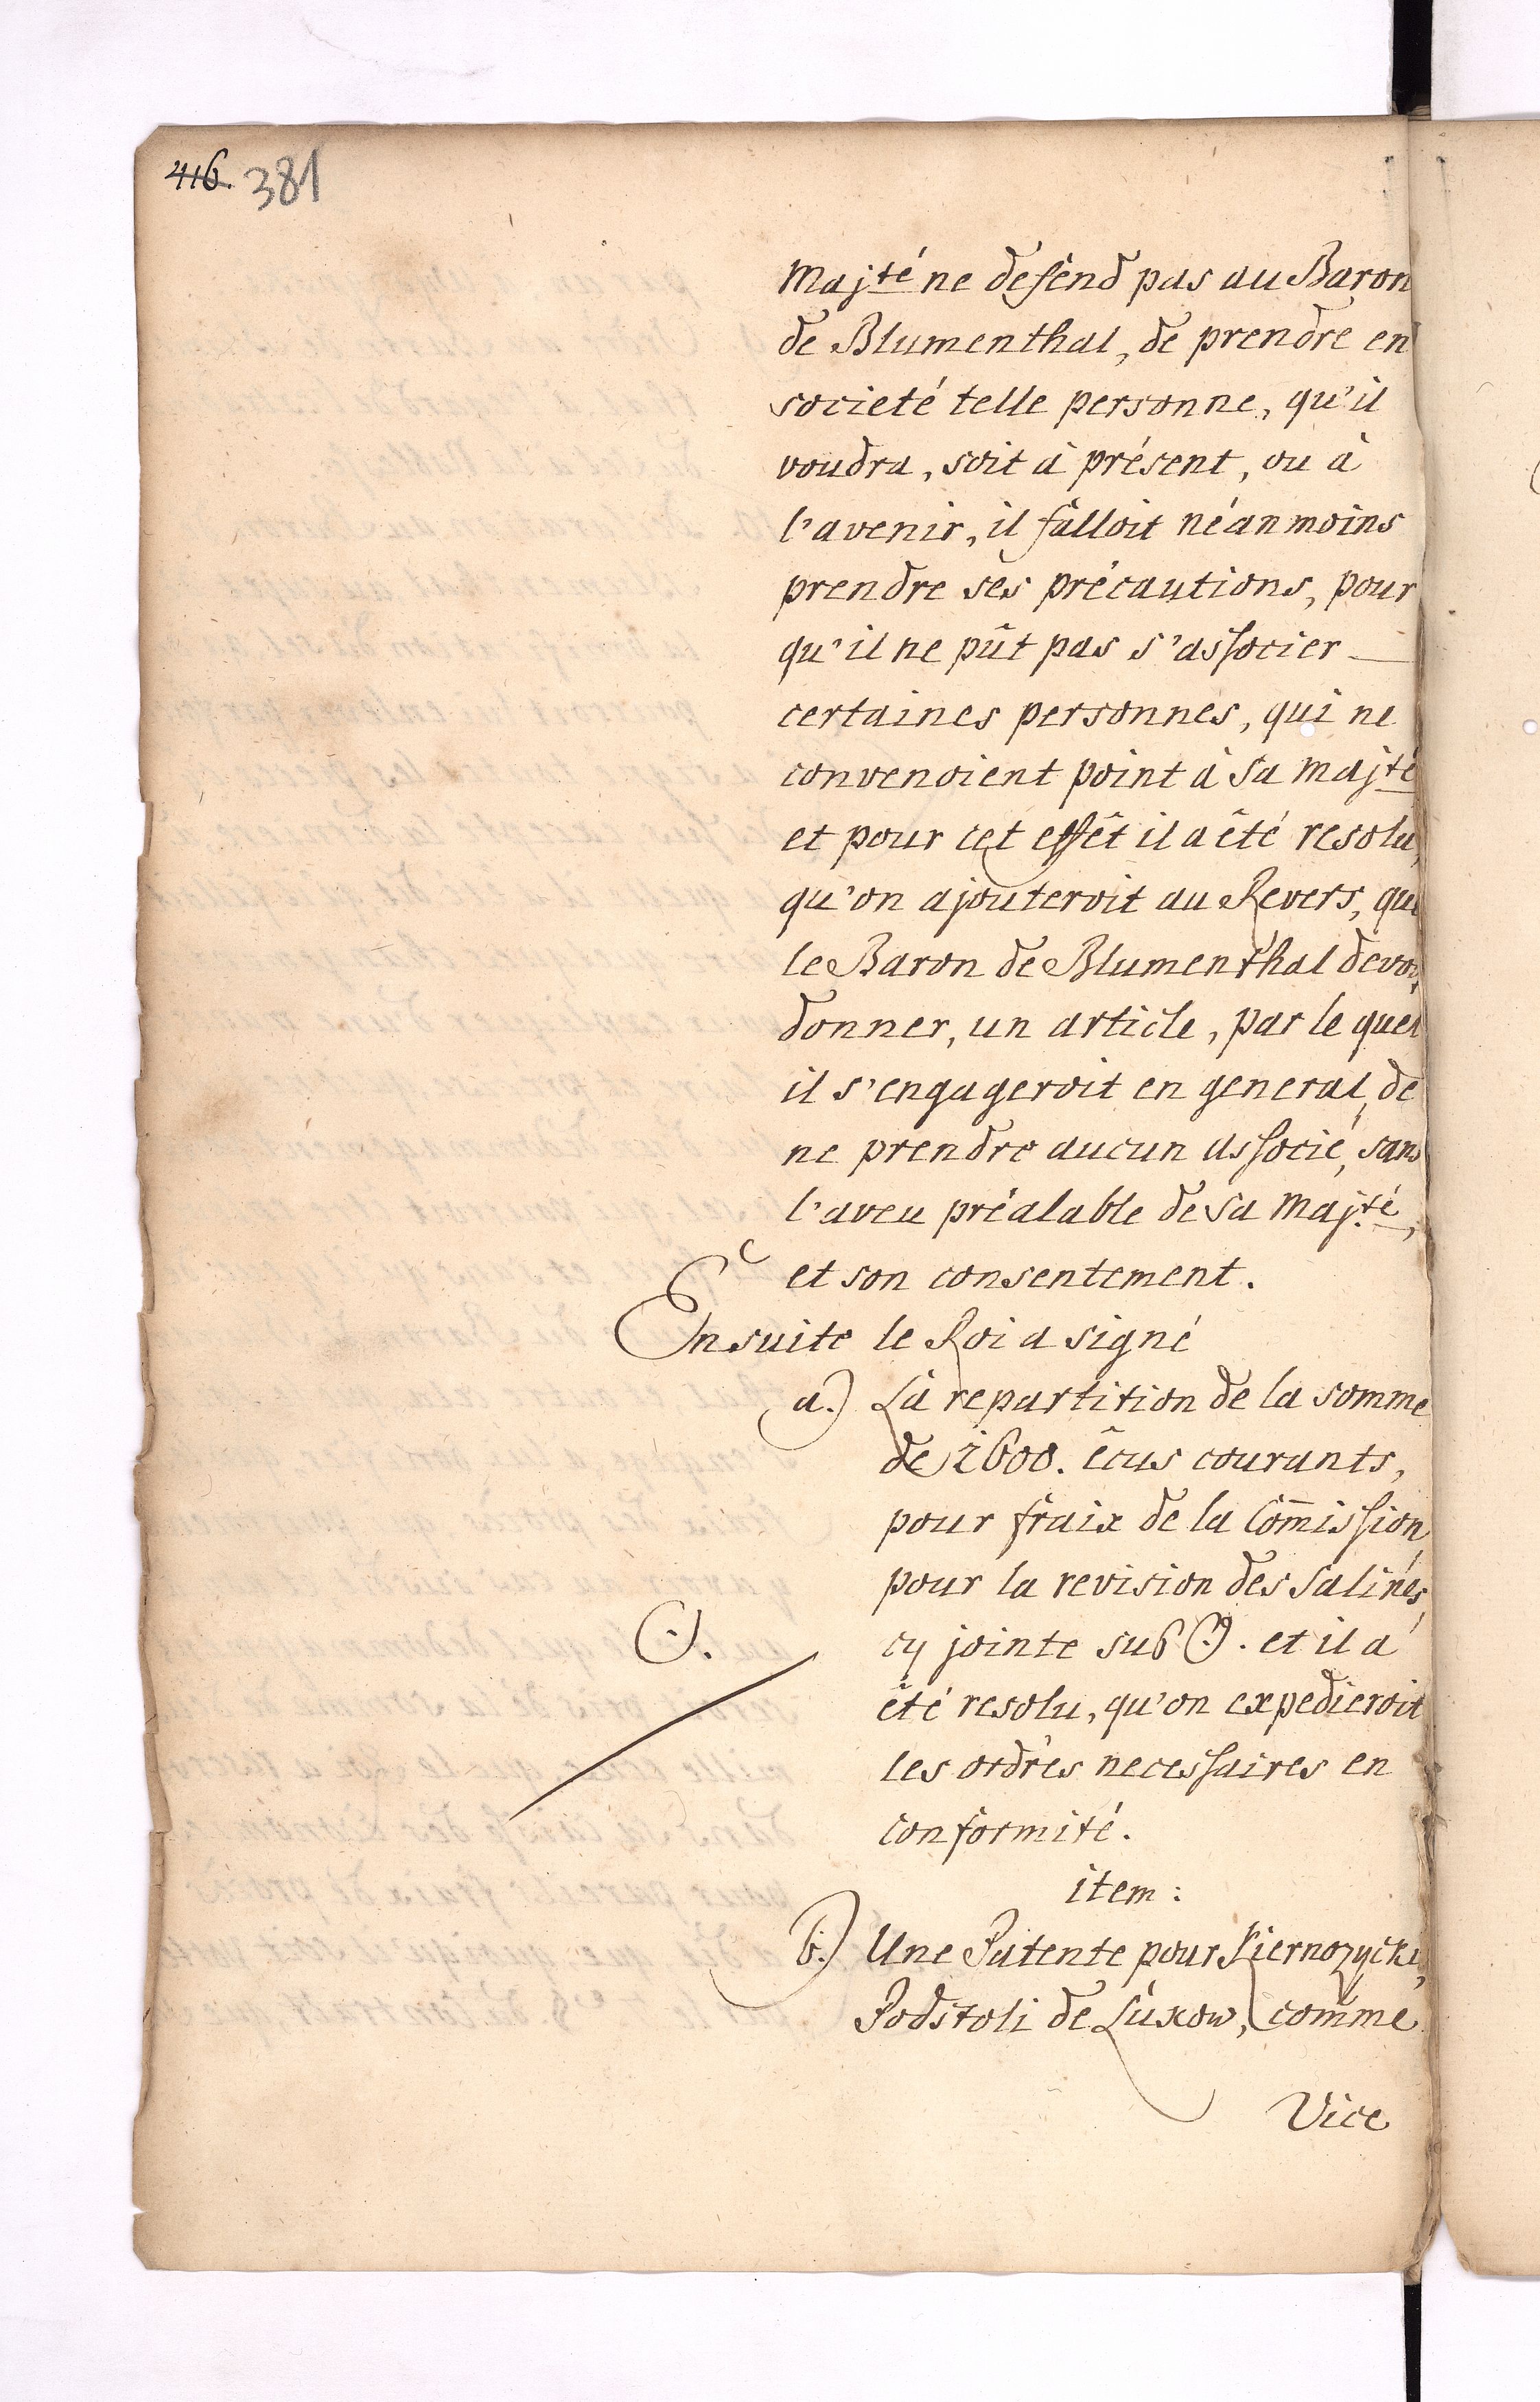 416. 381
Majté ne defend pas au Baron
de Blumenthal, de prendre en
societé telle personne, qu'il
voudra, soit à présent, ou à
l'avenir, il falloit néanmoins
prendre ses précautions, pour
qu'il ne pût pas s'associer
certaines personnes, qui ne
convenoient point à Sa Majté
et pour cet effêt il a êté resolu,
qu'on ajouteroit au Revers, que
le Baron de Blumenthal devoi
donner, un article, par le quel
il s'engageroit en general, de
ne prendre aucun associé, sans
l'aveu préalable de Sa Majté,
et son consentement.
Ensuite le Roi a signé
a.) La repartition de la somme
de 1600. êcus courants,
pour fraix de la Com̄ission
pour la revision des Salines,
cy jointe sub ☉. et il a
☉.
êté resolu, qu'on expedieroit
les ordres necessaires en
conformité.
item:
b.) Une Patente pour Kiernozycki,
Podstoli de Luxow, comme
Vice